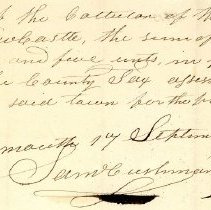 of the Collector of the
Castle, the sum of
and five cents, in
County Tax assess
said town for the
mouth 17 Septem
Sam Cushman